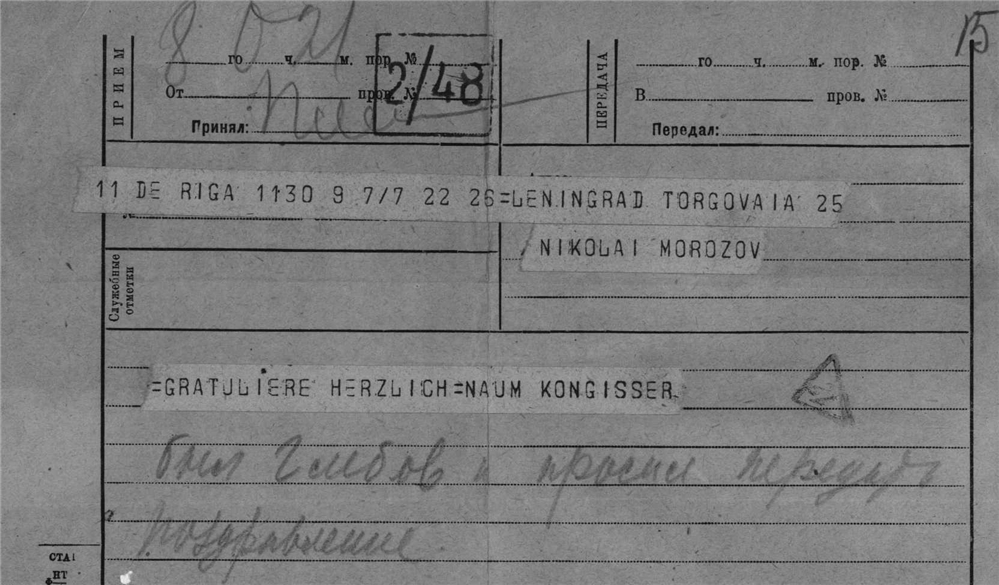 15
8 0 21
ПРИЕМ
го ч. м. пор. №
От пров. №
2/48
Принял:
ПЕРЕДАЧА
го ч. м. пор. №
В пров. №
Передал:
11 DE RIGA 1130 9 7/7 22 26=LENINGRAD TORGOVAIA 25
NIKOLAI MOROZOV
Служебные
отметки
=GRATULIERE HERZLICH=NAUM KONGISSER
был Глебов и просил передать
поздравление.
СТА
НТ